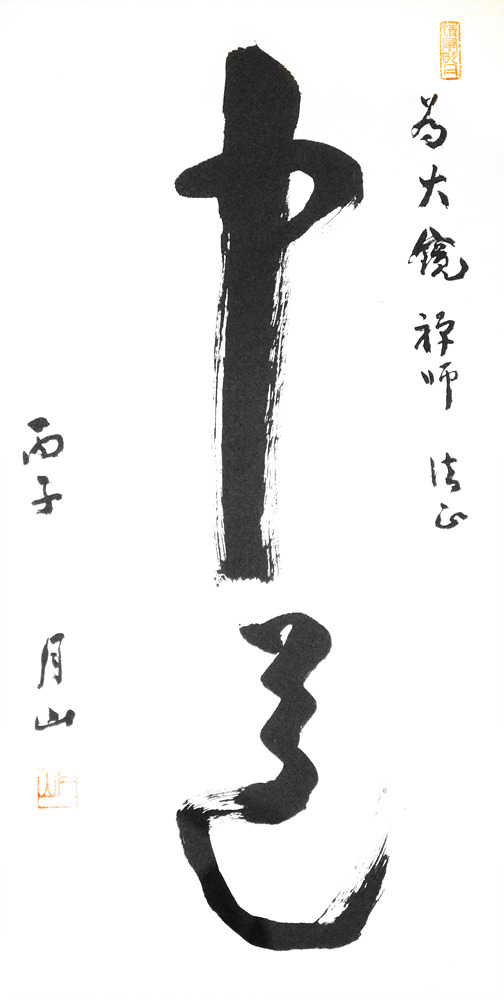 為大鏡禅師 法正
中道
丙子 月山